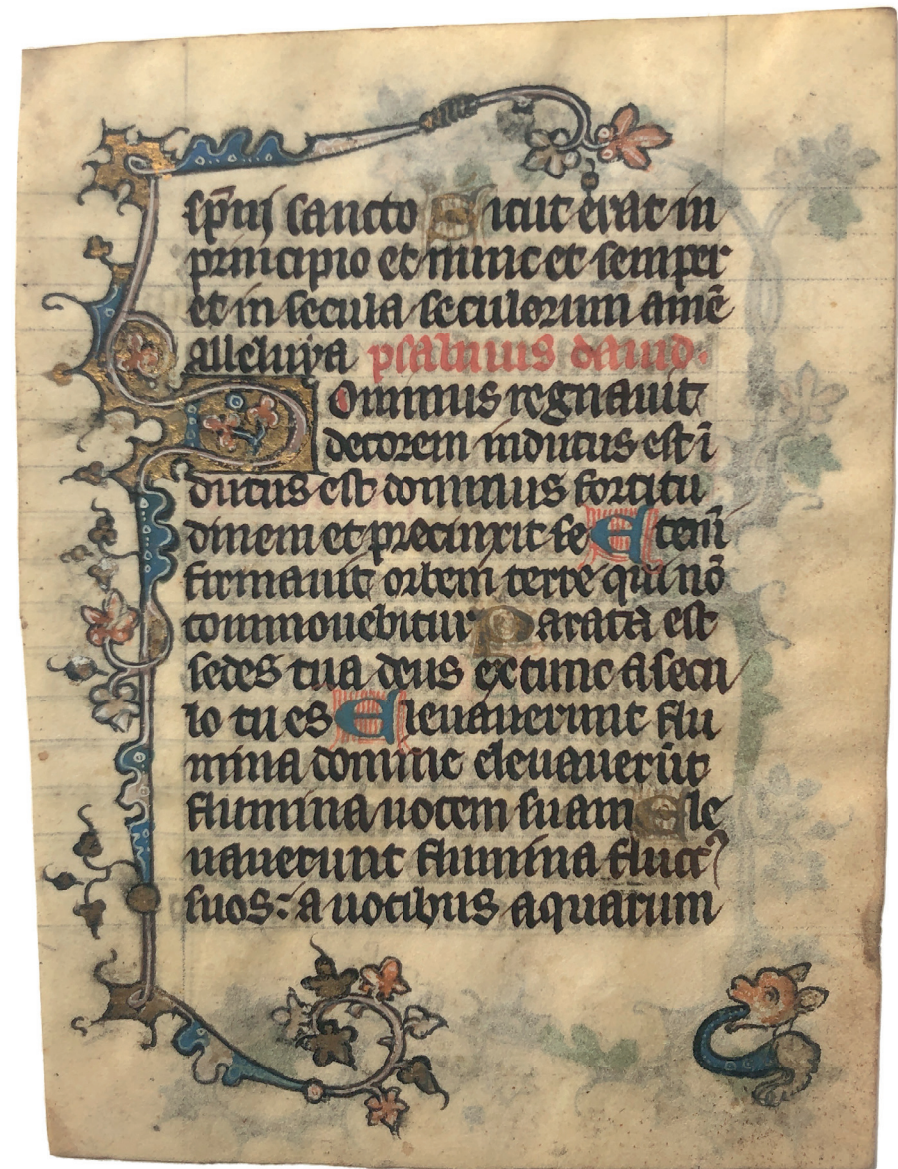 sp̄ui sancto Sicut erat in
principio et nunc et semper
et in secula seculorum amē
Alleluya psalmus dauid.
Dominus regnauit
decorem indutus est ī
dutus est dominus fortitu
dinem et precinxit se Etenī
firmauit orbem terre qui nō
commouebitur Parata est
sedes tua deus ex tunc a secu
lo tu es Eleuauerunt flu
mina domine eleuauerūt
flumina uocem suam Ele
uauerunt flumina fluctꝰ
suos: a uocibus aquarum